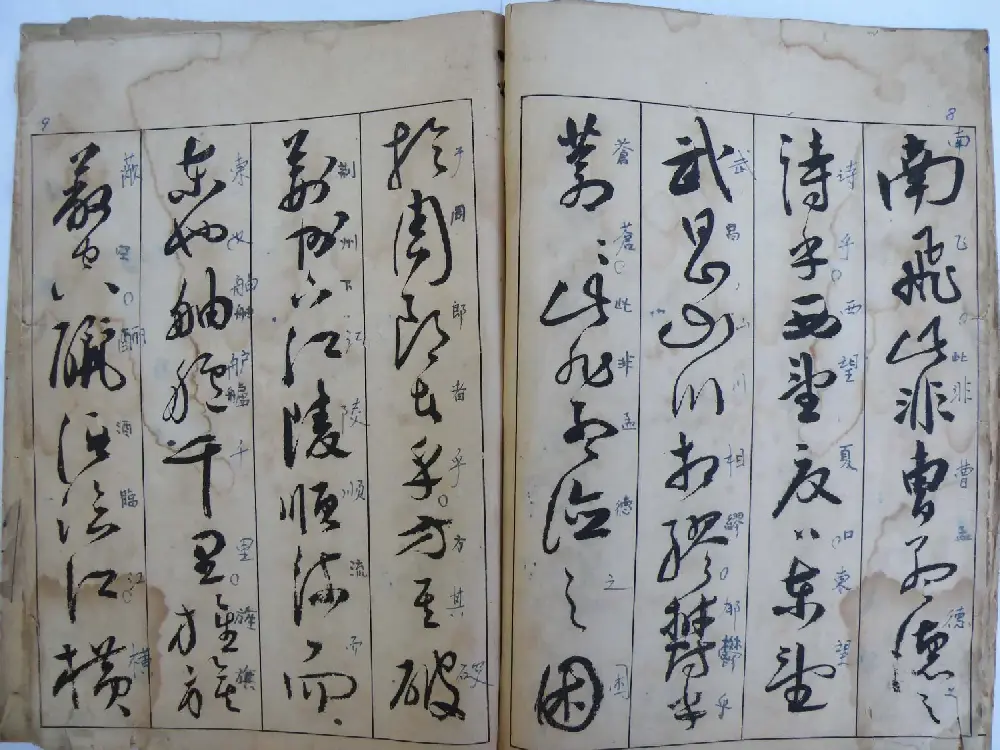 8
南飛此非曹孟德之
詩乎西望夏口東望
武昌山川相繆鬱乎
蒼蒼此非孟德之困
9
於周郎者乎方其破
荆州下江陵順流而
東也舳艫千里旌旗
蔽空釃酒臨江橫